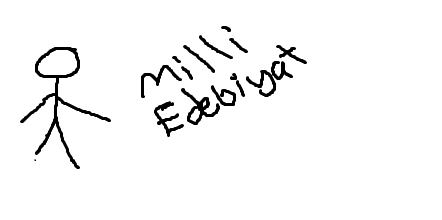 Milli
Edebiyat